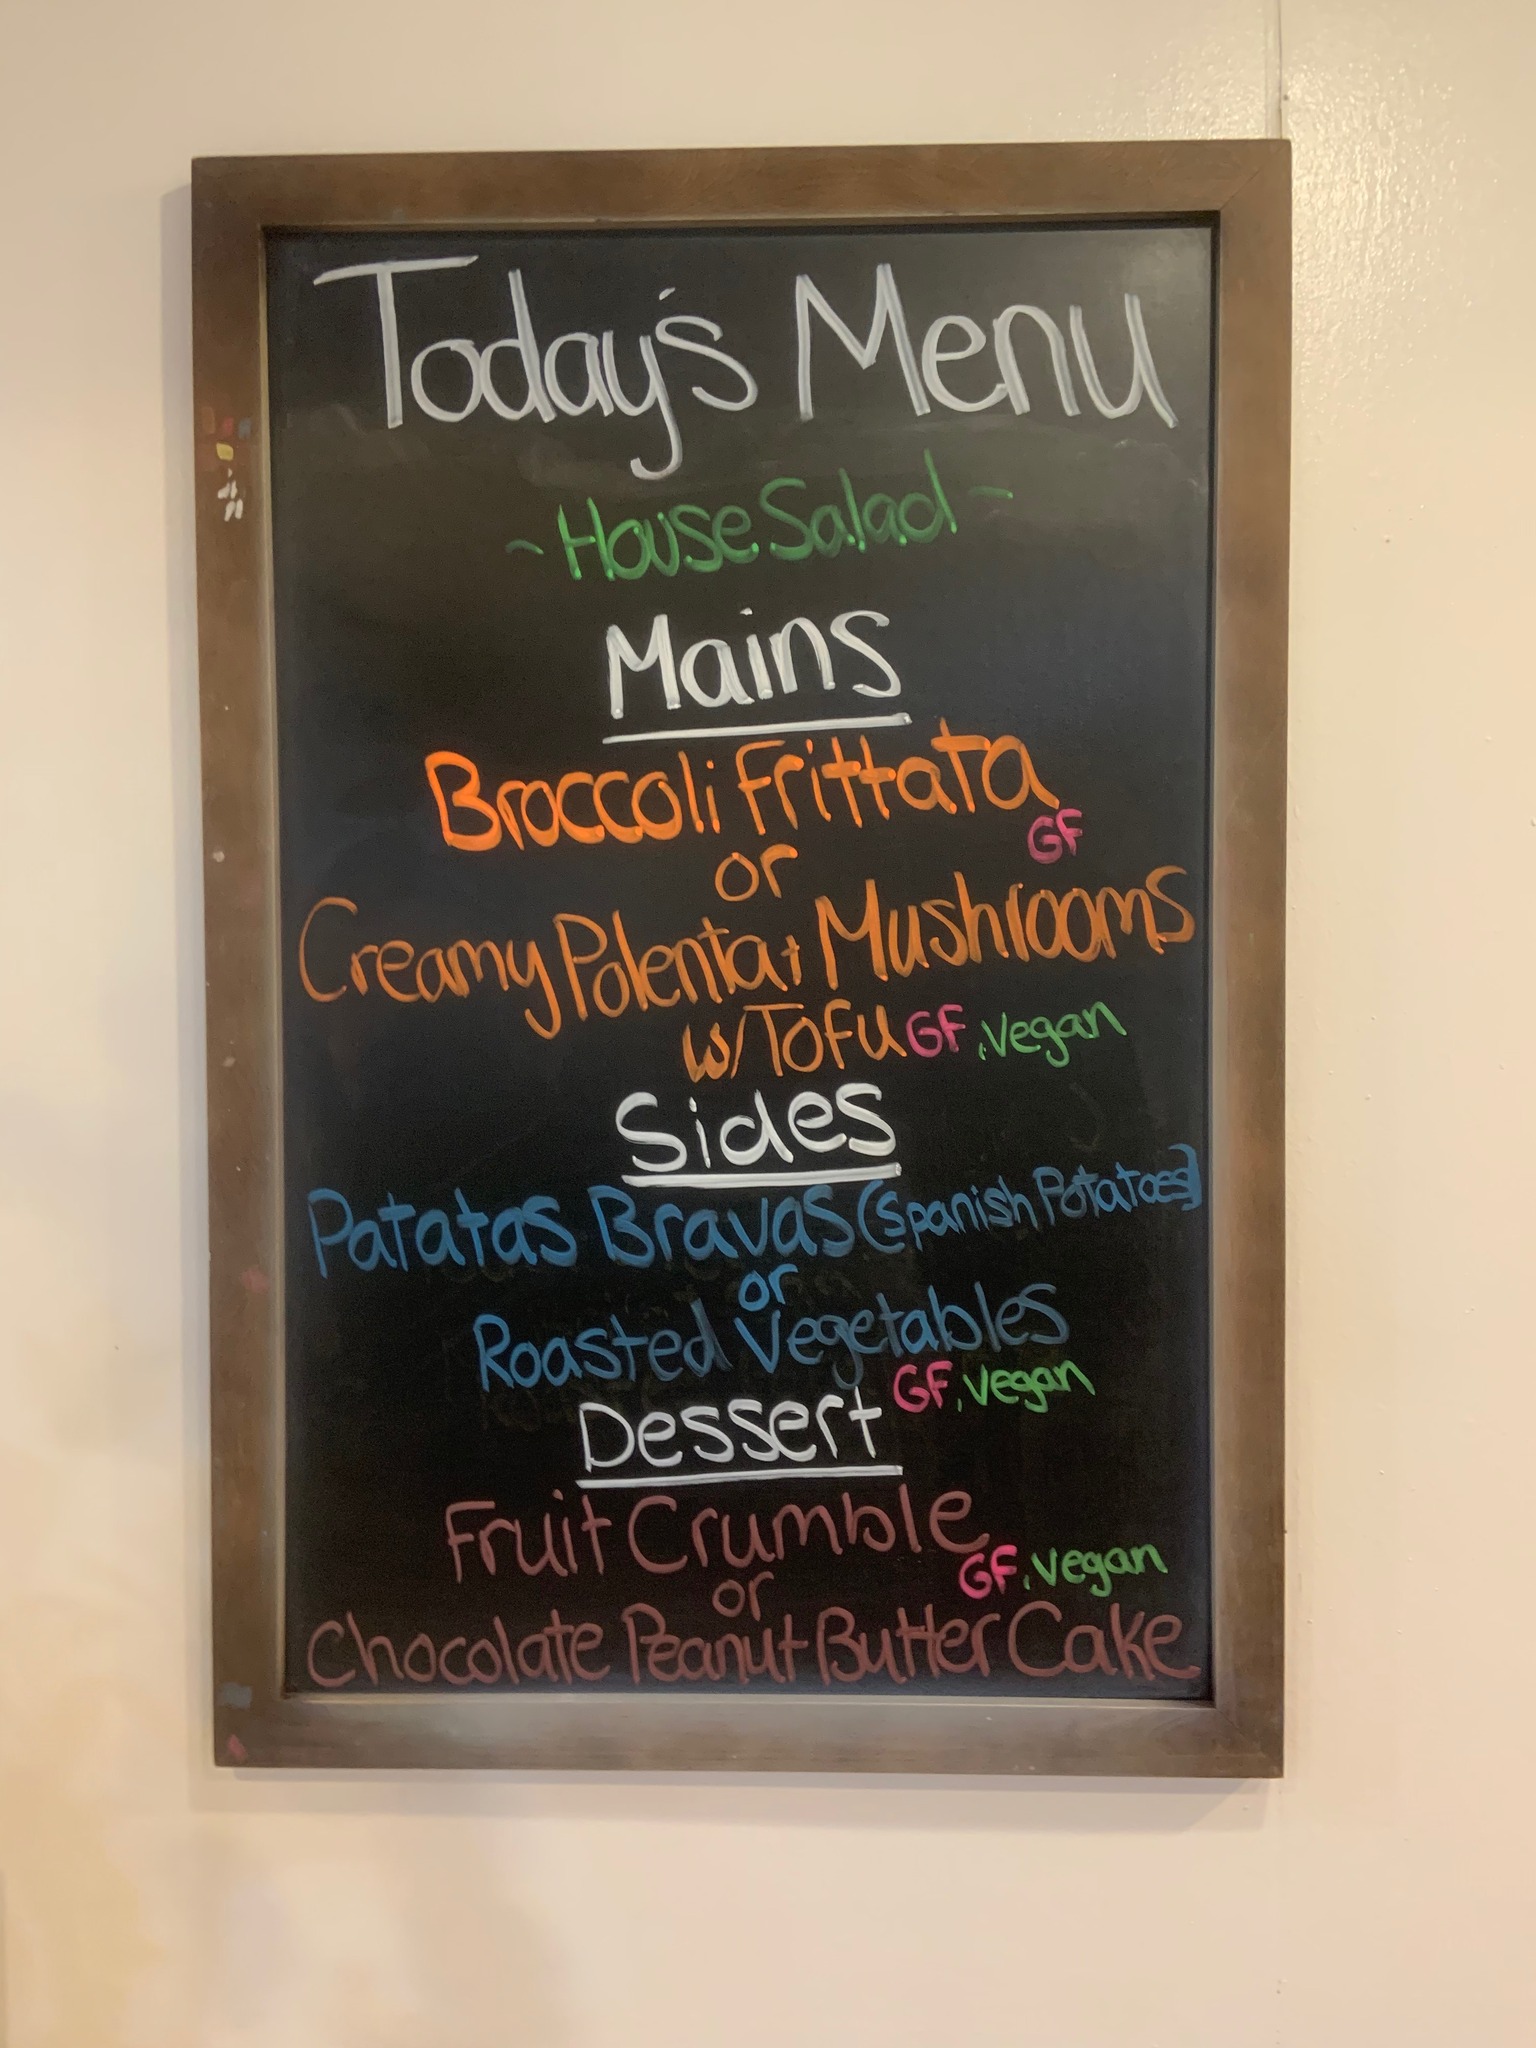 Today's Menu
- House Salad -
Mains
Broccoli Frittata
GF
or
Creamy Polenta + Mushrooms
w/ Tofu GF, Vegan
Sides
Patatas Bravas (Spanish Potatoes)
or
Roasted Vegetables
GF, Vegan
Dessert
Fruit Crumble
GF, Vegan
or
Chocolate Peanut Butter Cake